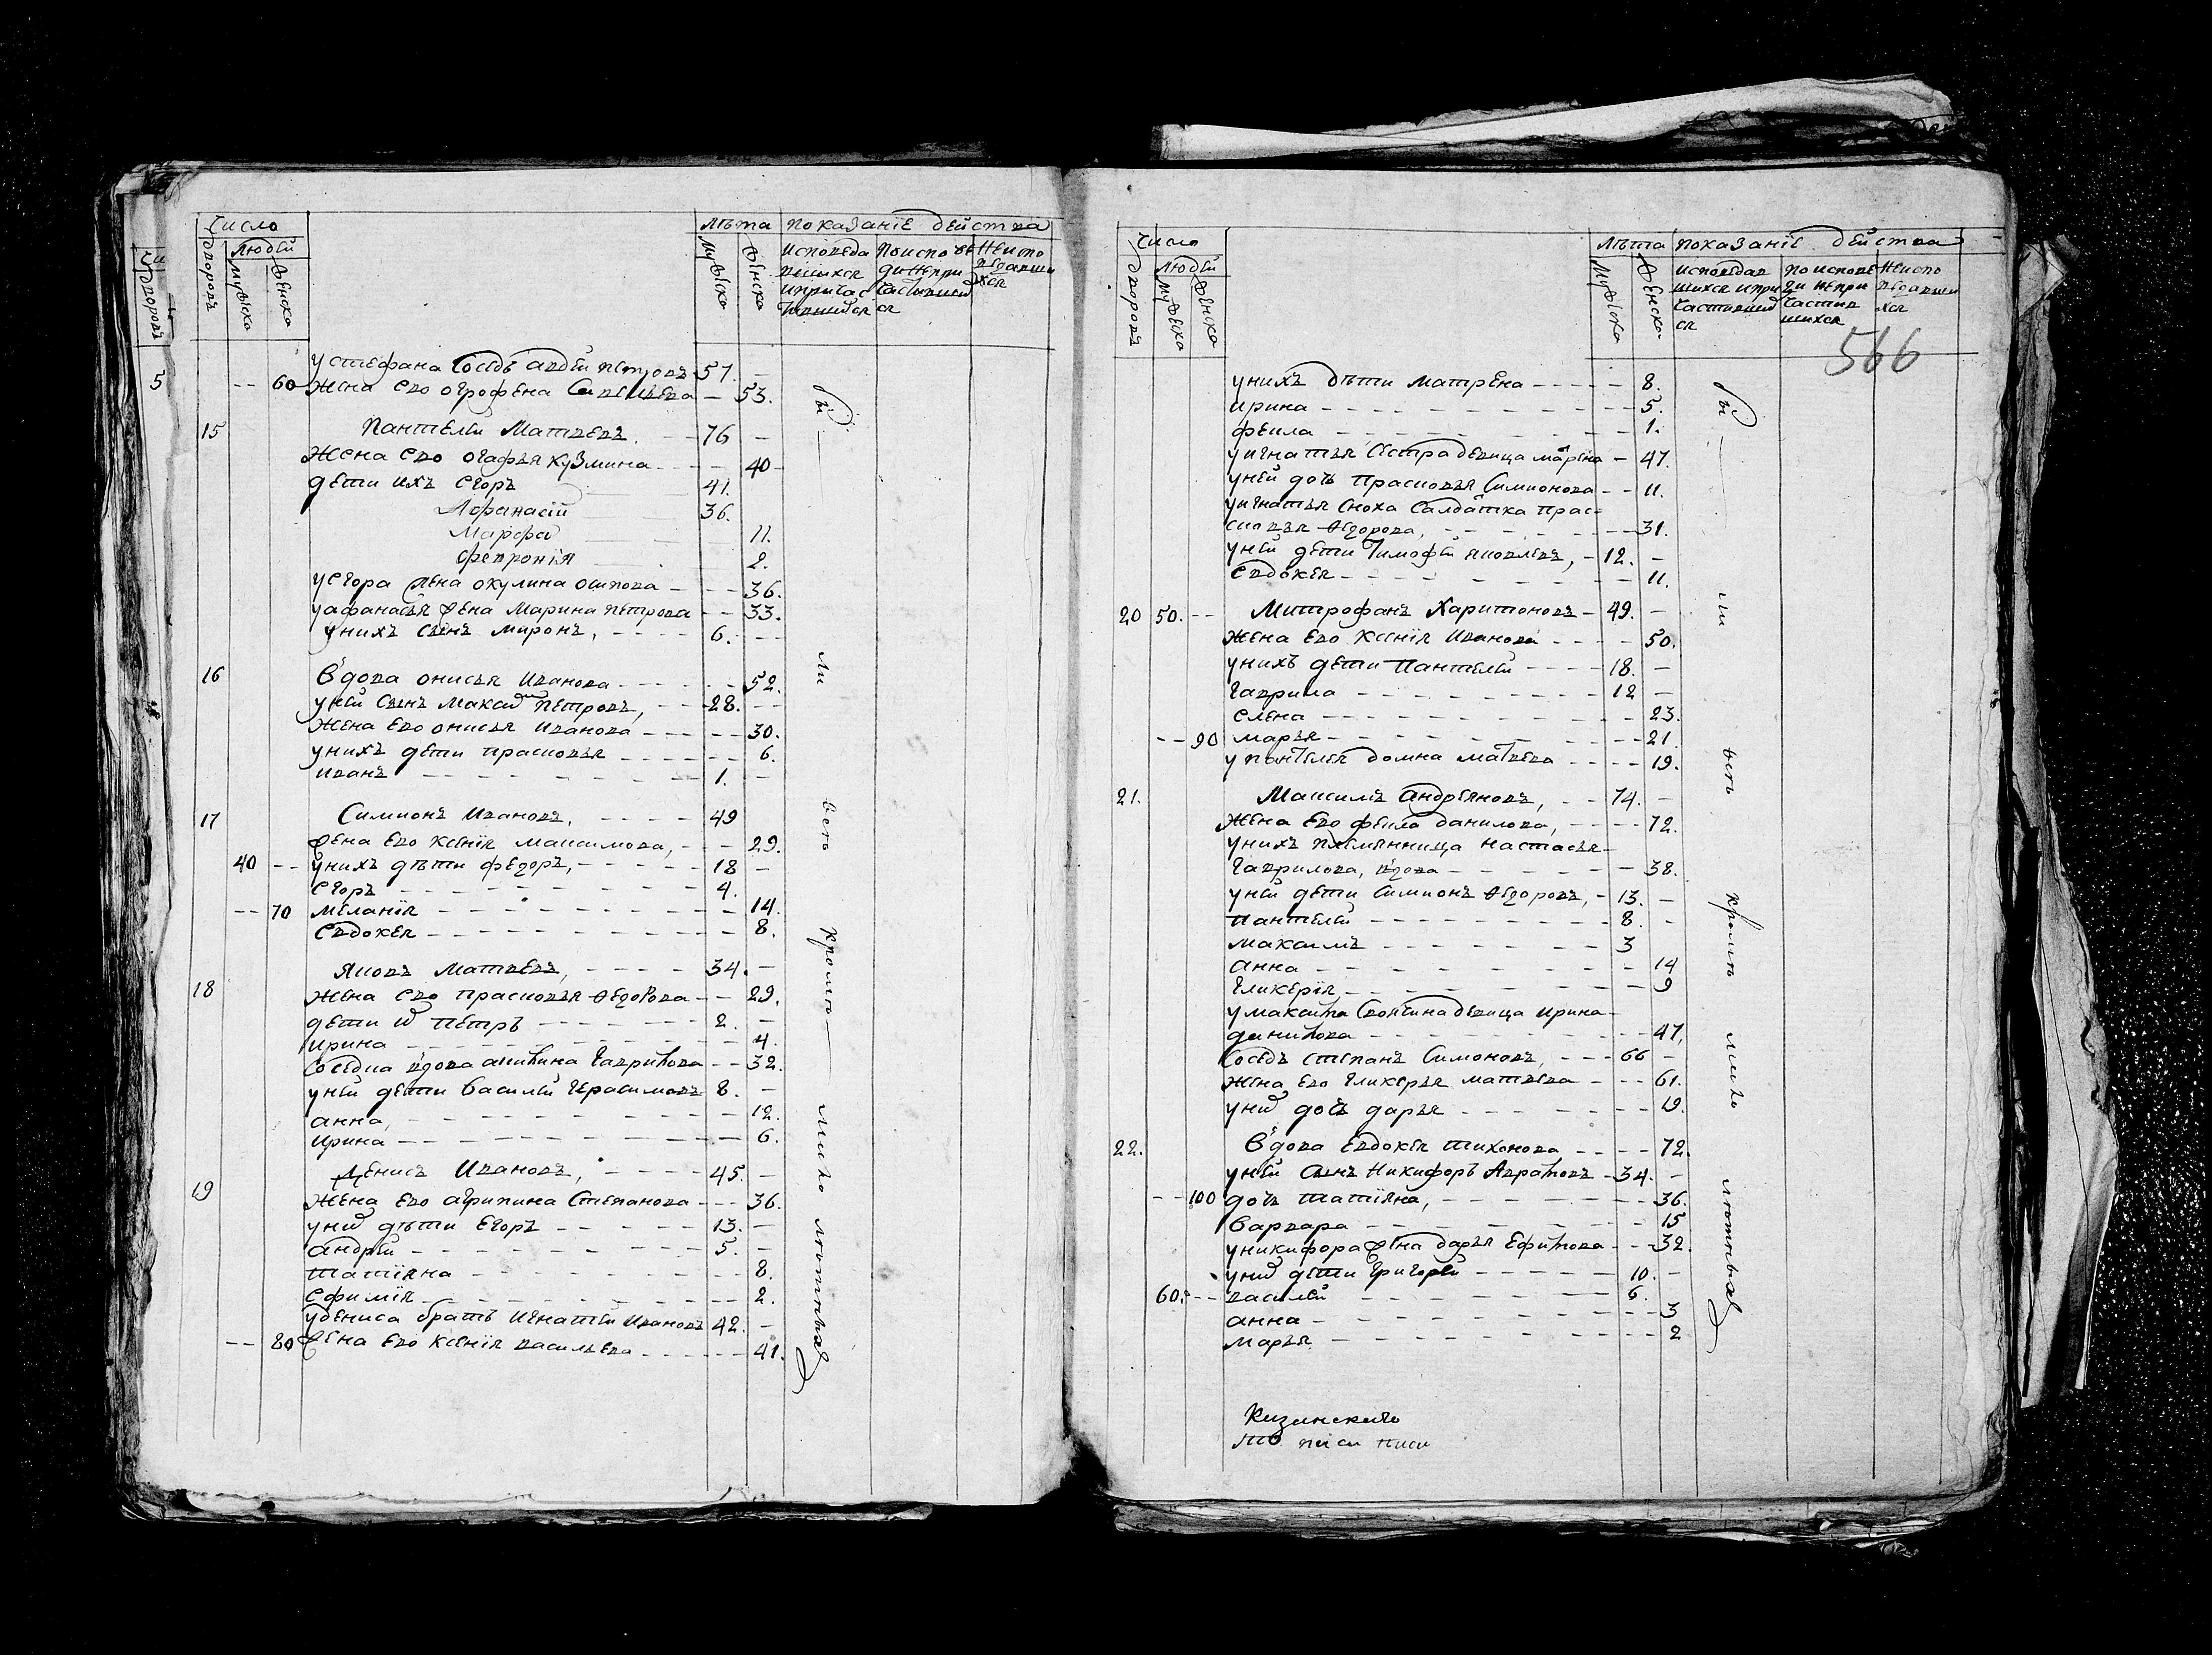 Число
Лѣта показанїе действа
Дворовъ
Людей
Мужска
Женска
Мужска
Женска
исповеда
вшихся
и причас
тившихся
По испо ве
ди непри
частивших
ся
Неиспо
ведавши
хся
у стефана Соседъ авдей петровъ 57. –
-- 60 Жена ево огрофена Савельева – 53.
15 Пантелей Матвевъ. – – 76 –
жена ево огафья кузмина – – – 40 –
дети ихъ егоръ 41.
Афанасий 36.
Марфа 11.
февронїя 2.
у егора жена окулина осипова – – – 36.
у афанасья жена Марина петрова – – 33.
у нихъ сынъ миронъ, – – – – 6. – –
16 Вдова онисья иванова – – – – – 52.
у ней сынъ Макси петровъ, – – 28. – –
жена ево онисья иванова – – – – – 30.
у нихъ дети прасковья – – – – – 6.
иванъ – – – – – – – – – 1. –
17 Симионъ иванов, – – – – 49
жена ево ксенїя максимова, – – – 29.
40 -- у нихъ дѣти федоръ, – – – – – 18 –
егоръ – – – – – – – – 4.
-- 70 меланїя – – – – – – – – – 14.
евдокея – – – – – – – – – 8.
18 Яковъ матвевъ, – – – – 34. –
жена ево прасковья федорова – – 29.
дети их петръ – – – – – – – 2. –
ирина – – – – – – – – – 4.
соседка вдова акилина гаврилова – – 32.
у ней дети василей герасимовъ 8. –
анна, – – – – – – – – – 12.
ирина – – – – – – – – – 6.
19 Денисъ иванов, – – – – 45. –
жена ево агрипина степанова – – – 36.
у них дѣти егоръ – – – – – 13. –
андрей – – – – – – – – 5. –
татїяна – – – – – – – – 8.
ефимїя – – – – – – – – 2.
у дениса братъ игнатей ивановъ 42. –
-- 80 жена ево ксенїя васильева – – – – – – 41.
бы ли всѣ кромѣ мало лѣтныхъ
Число
Лѣта показанїе действа
Дворовъ
Людей
Мужска
Женска
Мужска
Женска
исповедав
шихся и при
частивших
ся
по испове
ди непри
частив
шихся
Неиспо
ведавши
хся
566
у нихъ дѣти матрена – – – – – 8.
ирина – – – – – – – – – 5.
феила – – – – – – – – – 1.
у игнатья сестра девица марена – 47.
у ней дочь прасковья Симионова – – 11.
у игнатья сноха салдатка прас-
ковья федорова, – – – – – – – 31.
у ней дети тимофей яковлевъ, – 12. –
евдокея – – – – – – – – – 11.
20 50. -- Митрофанъ Харитоновъ – 49. –
жена ево ксенїя иванова – – – – – 50.
у нихъ дети пантелей – – – – 18. –
гаврила – – – – – – – – – 12 –
елена – – – – – – – – – 23.
-- 90 марья – – – – – – – – – 21.
у пантелея домна матвева – – – – 19.
21. Максимъ андреяновъ, – – 74. –
жена ево феила данилова, – – – – 72.
у нихъ племянница настасья
гаврилова, вдова – – – – – – 38.
у ней дети симионъ федоровъ, – 13. –
пантелей – – – – – – – – 8. –
максимъ – – – – – – – – 3
анна – – – – – – – – – 14
гликерїя – – – – – – – – – 9
у максима свояченица девица ирина
данилова – – – – – – – – – 47.
соседъ степанъ симоновъ, – – – 66 –
жена ево гликерья матвева – – – 61.
у них дочь дарья – – – – – – – 19.
22. Вдова евдокея тихонова – – – – 72.
у ней сынъ никифоръ аврамовъ – 34. –
-- 100 дочь татїяна, – – – – – – – 36.
варвара – – – – – – – – – 15
у никифора жена дарья ефимова – – – 32.
у них дети григорей – – – – – 10. –
60. -- василей – – – – – – – 6.
анна – – – – – – – – – 3
марья – – – – – – – – – 2
бы ли всѣ кромѣ мало лѣтныхъ